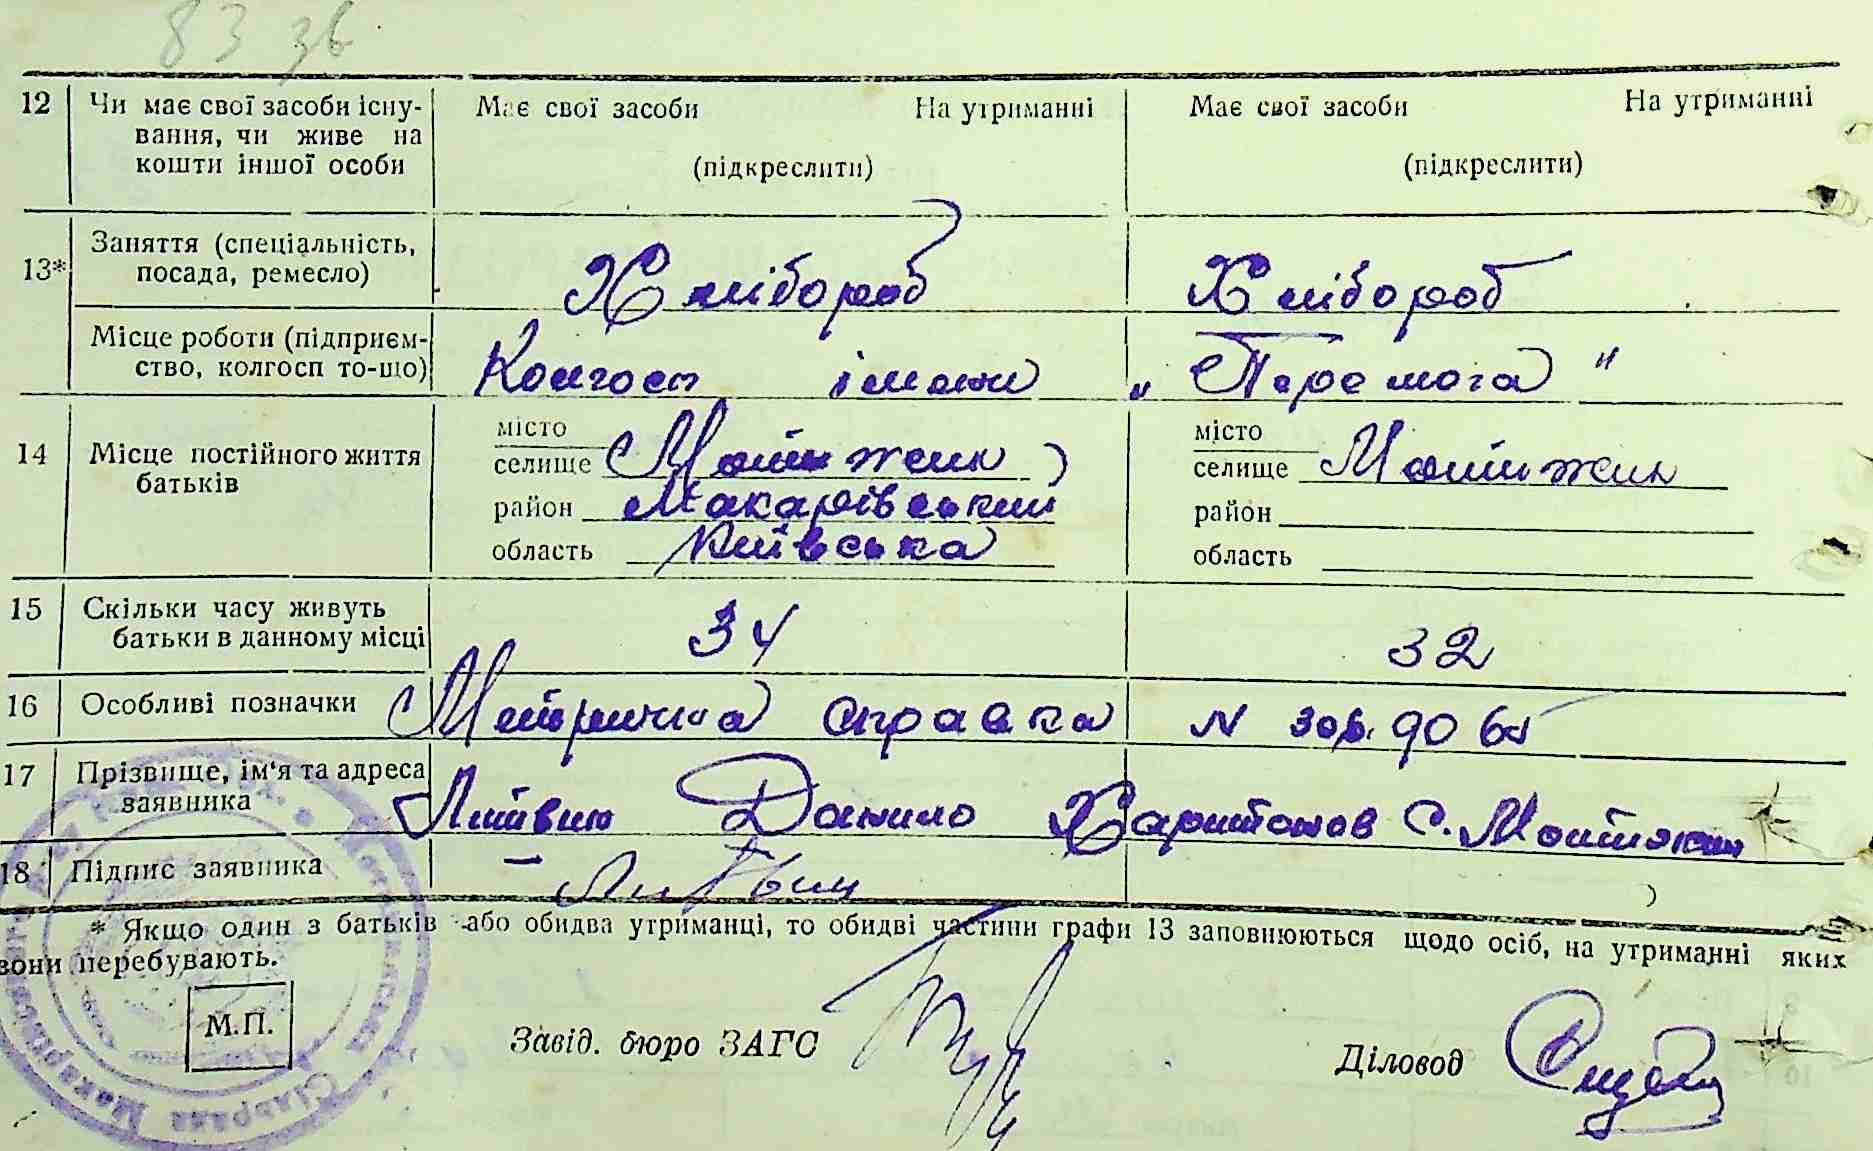 83 зв
12 Чи має свої засоби існу- Має свої засоби На утриманні Має свої засоби На утриманні
вання, чи живе на
кошти іншої особи (підкреслити) (підкреслити)
13* Заняття (спеціальність,
посада, ремесло) Хлібороб Хлібороб
Місце роботи (підприєм-
ство, колгосп то-що) Колгосп імени „ Перемога "
14 Місце постійного життя
батьків
місто місто
селище Мотижин селище Мотижин
район Макарівський район
область Київська область
15 Скільки часу живуть
батьки в данному місці 34 32
16 Особливі позначки Метрична справка N 90
17 Прізвище, ім'я та адреса
заявника Литвин Данило Харитонов с. Мотижин
18 Підпис заявника Литвин
* Якщо один з батьків або обидва утриманці, то обидві частини графи 13 заповнюються щодо осіб, на утриманні яких
вони перебувають.
М.П.
Завід. бюро ЗАГС
Діловод
Сільрада Макарівськ